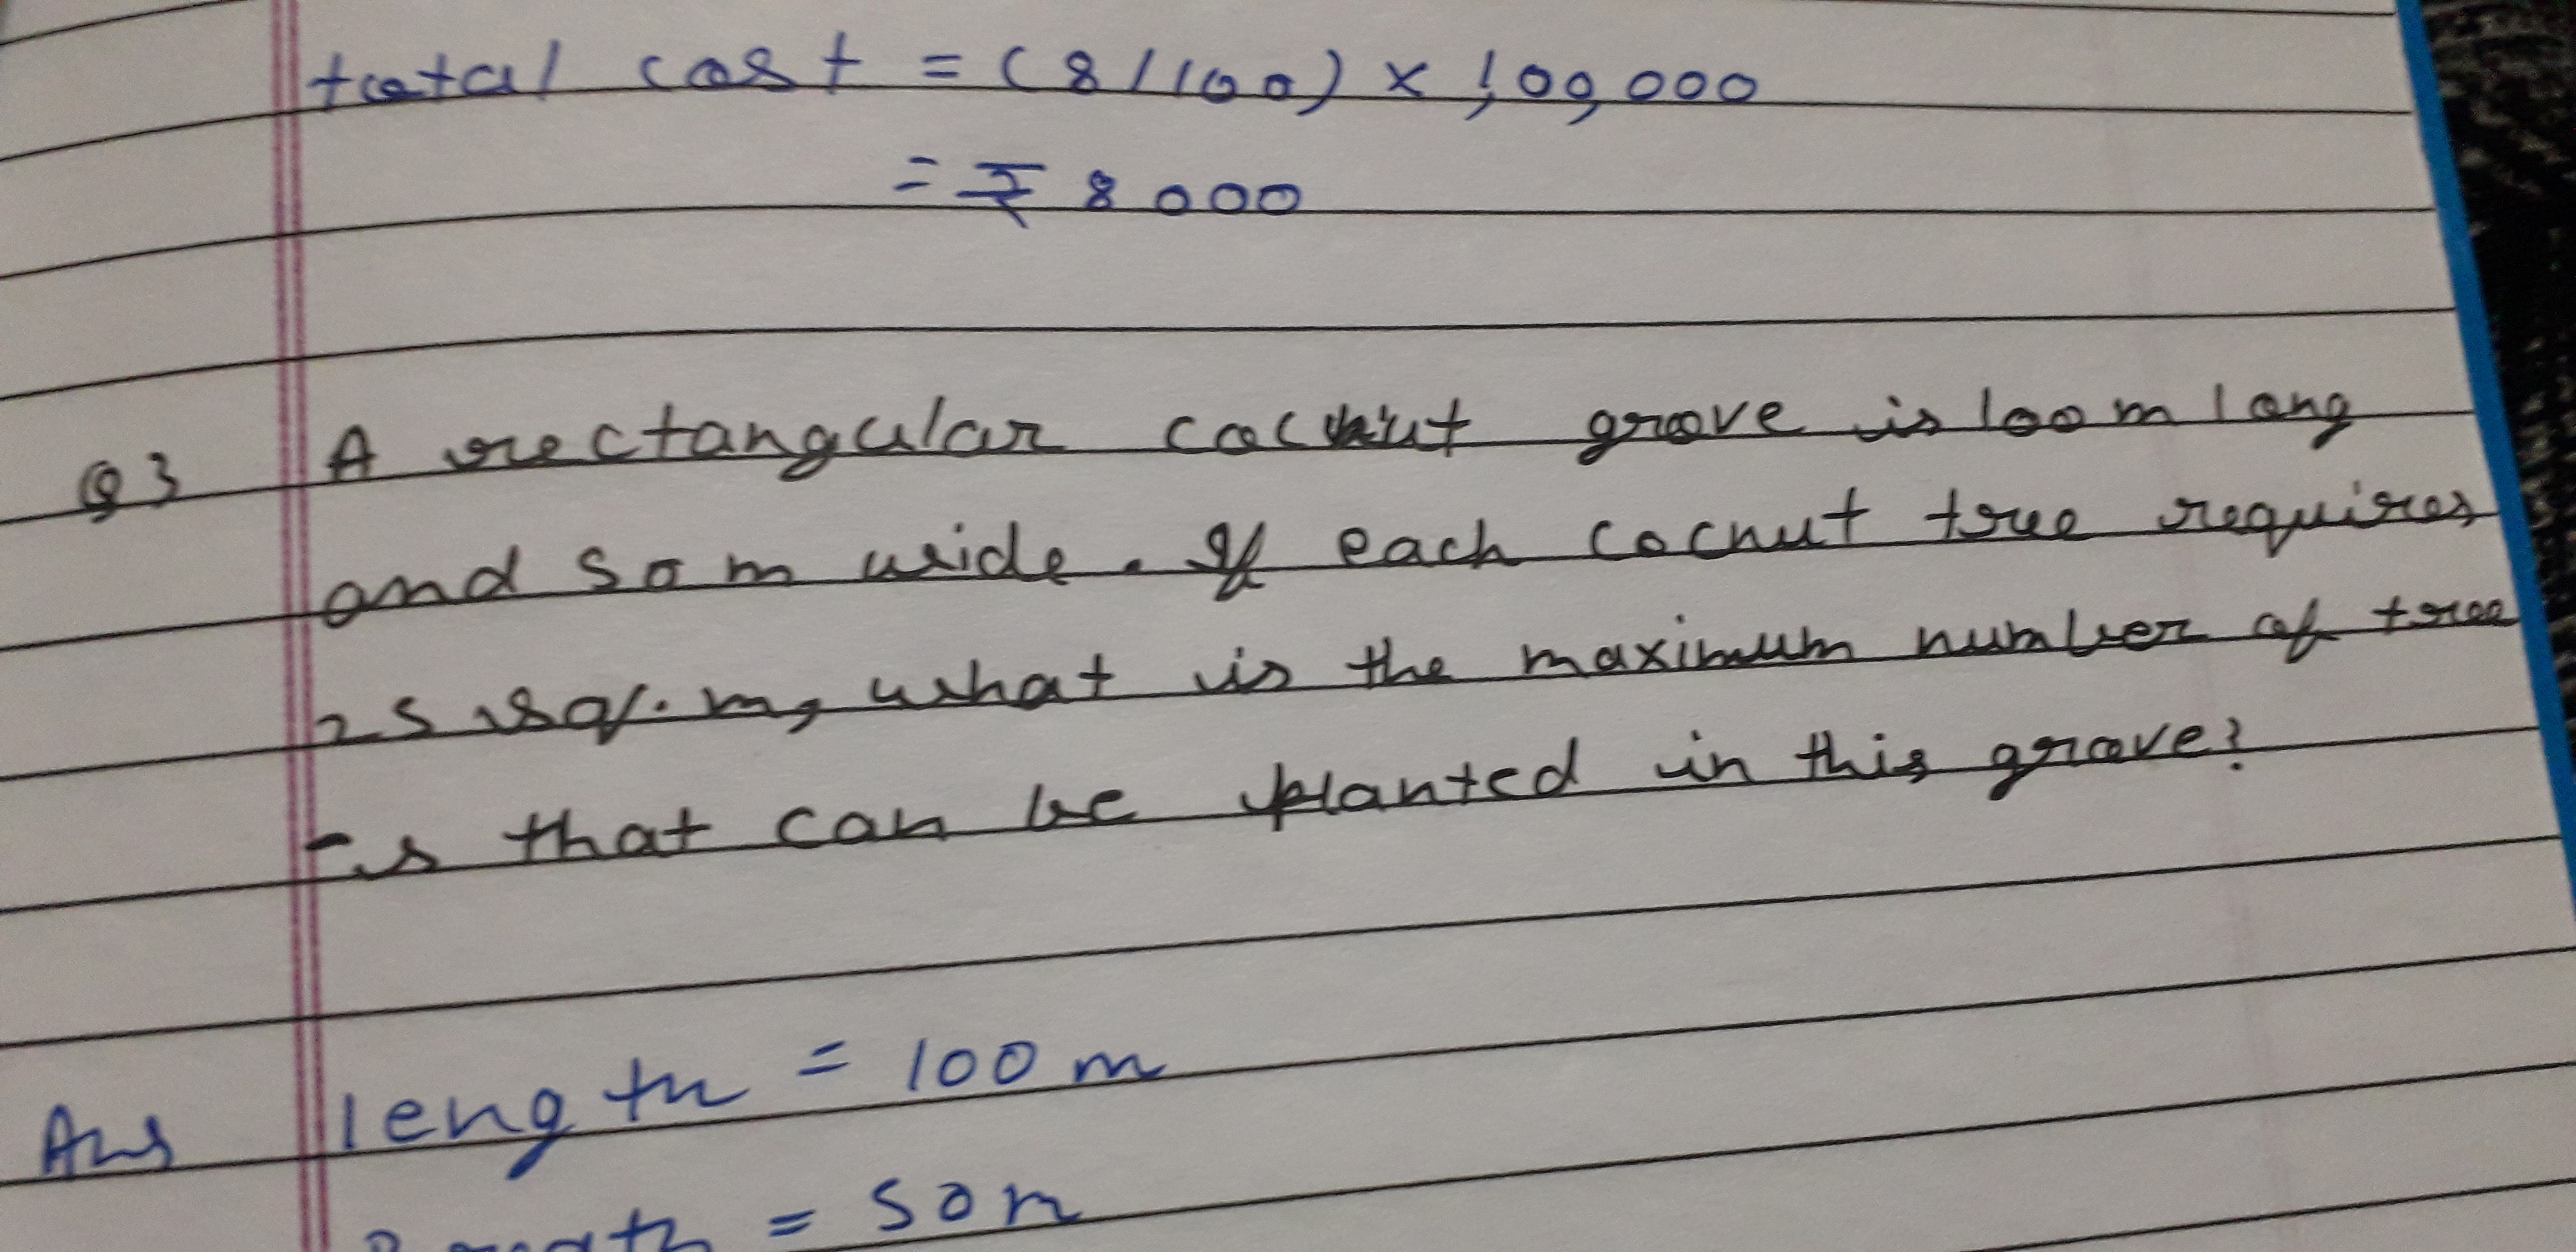 total cost = (8/100) × 1,00,000
= ₹ 8000
Q3 A rectangular coconut grove is 100 m long
and 50 m wide. If each coconut tree requires
25 sq. m, what is the maximum number of tree
-s that can be planted in this grove?
Ans length = 100 m
= 50 m